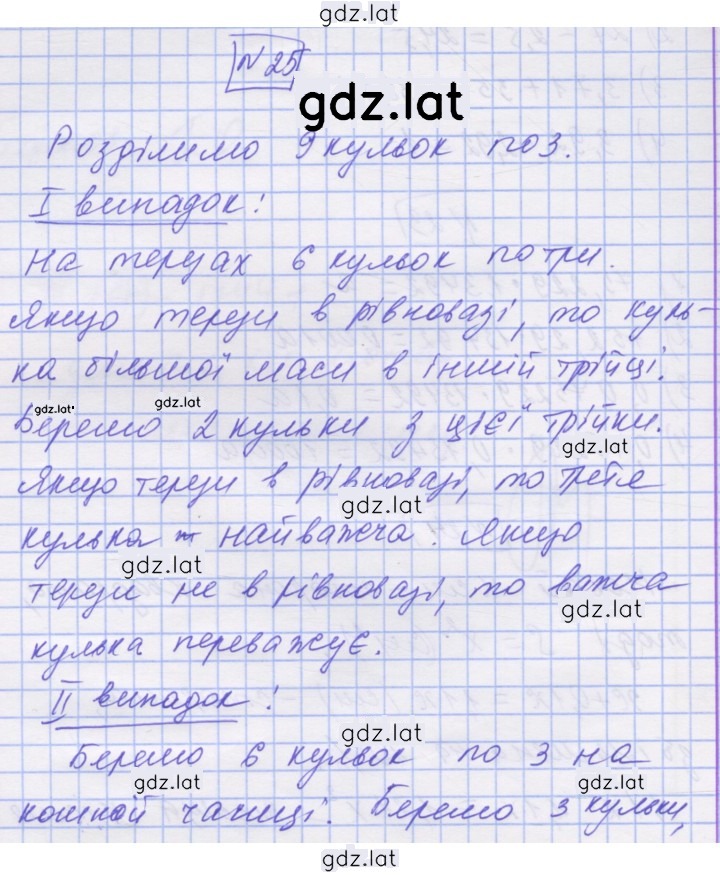 gdz.lat
№ 25
gdz.lat
Розділимо 9 кульок по 3.
I випадок:
На терезах 6 кульок по три.
Якщо терези в рівновазі, то куль-
ка більшої маси в іншій трійці.
gdz.lat gdz.lat
Беремо 2 кульки з цієї трійки.
gdz.lat
Якщо терези в рівновазі, то третя
gdz.lat
кулька – найважча. Якщо
gdz.lat
терези не в рівновазі, то важча
gdz.lat
кулька переважує.
II випадок:
gdz.lat
Беремо 6 кульок по 3 на
gdz.lat gdz.lat
кожній чашці. Беремо 3 кульки,
gdz.lat